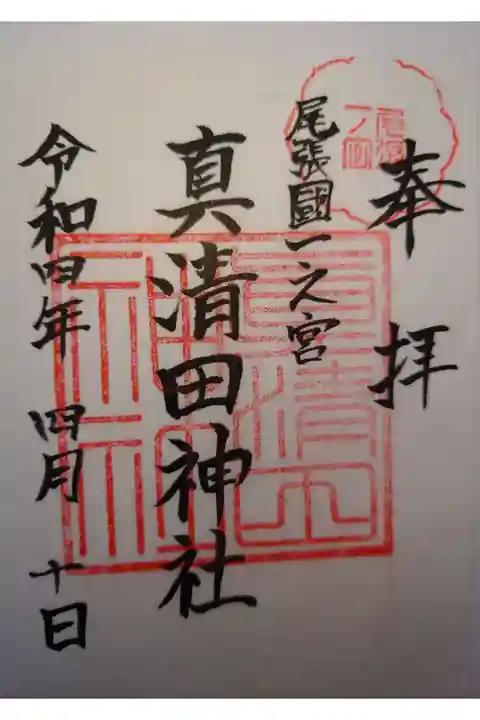 奉拝
尾張國一之宮
真清田神社
令和四年 四月 十日
尾張
一ノ宮
真清田
神社